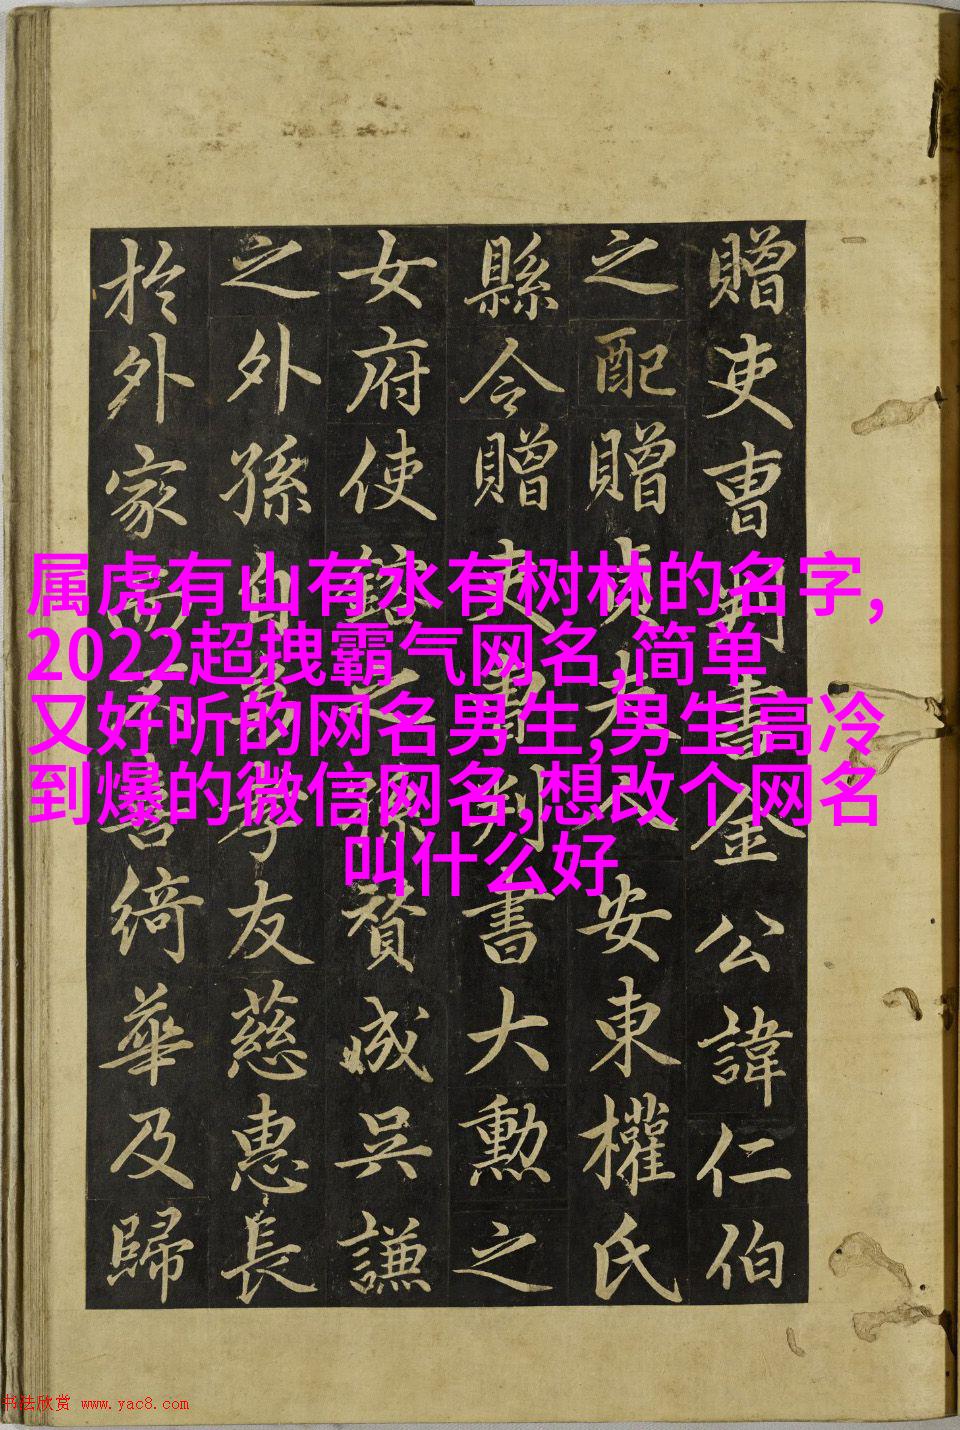 属虎有山有水有树林的名字,
2022超拽霸气网名,简单
又好听的网名男生,男生高冷
到爆的微信网名,想改个网名
叫什么好
贈吏曺判書金公諱仁伯
之配贈貞夫人安東權氏
縣令贈吏曺判書大勲之
女府使銓之孫賛成吳謙
之外孫自孝友慈惠長
於外家綺華及歸
书法欣赏 www.yac8.com